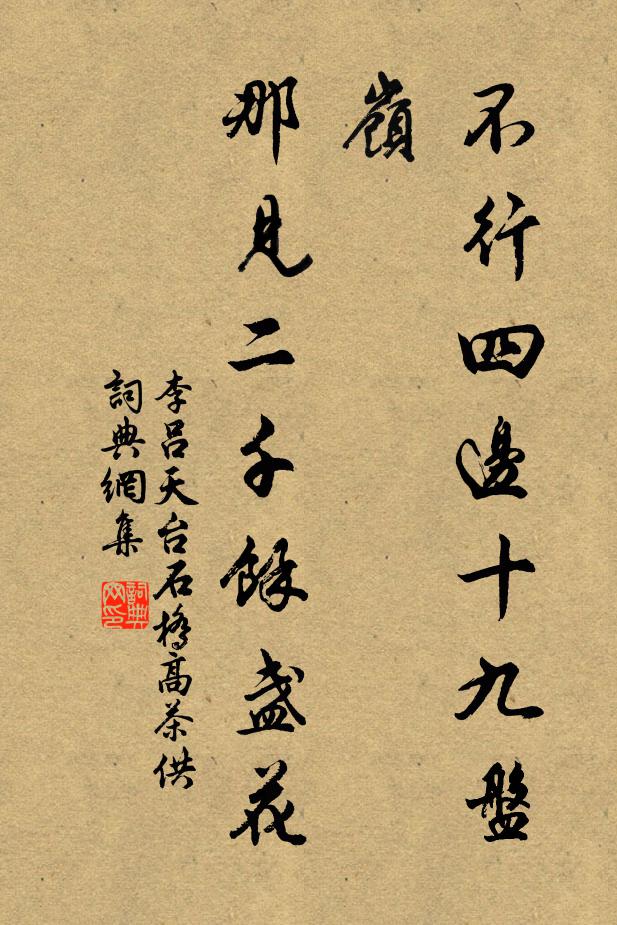 不行四邊十九盤
嶺
那見二千餘盞花
李呂天台石橋高茶供
詞典網集
詞典网印